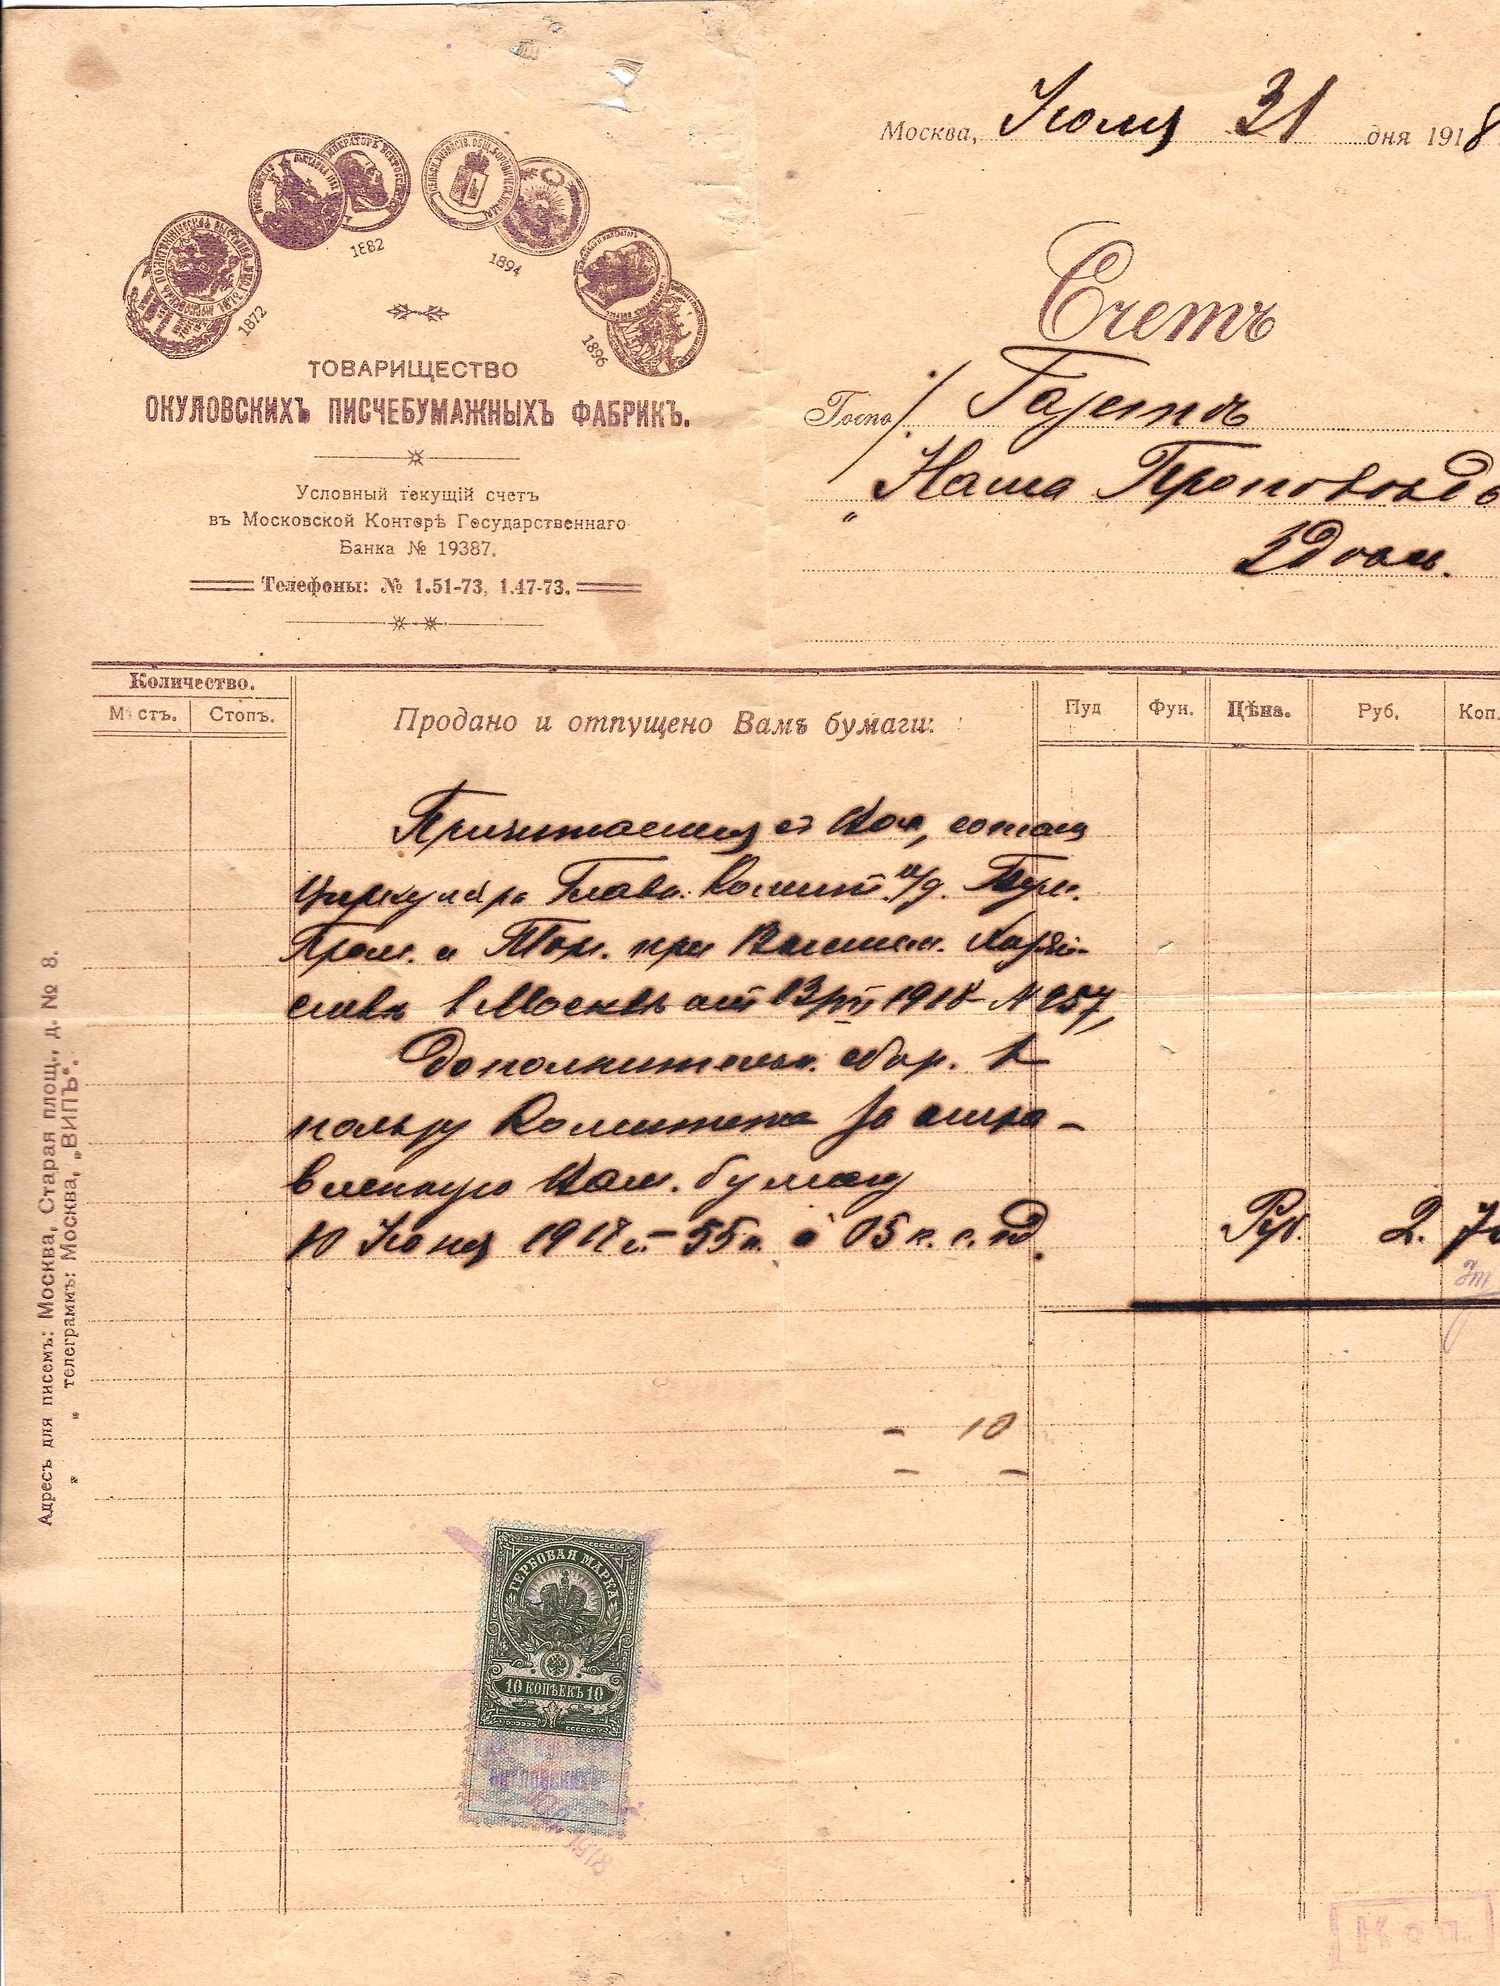 Москва, Июля 31 дня 1918
1872
1882
1894
1896
ТОВАРИЩЕСТВО
ОКУЛОВСКИХЪ ПИСЧЕБУМАЖНЫХЪ ФАБРИКЪ.
Условный текущій счетъ
въ Московской Конторѣ Государственнаго
Банка № 19387.
Телефоны: № 1.51-73, 1.47-73.
Счетъ
Госпо
Наша
Количество.
Мѣстъ. Стопъ.
Продано и отпущено Вамъ бумаги:
Пуд Фун. Цѣна. Руб. Коп.
Причитается съ Вас, согласно
Циркуляра Главн. Комит. п/д. Бум.
Пром. и Торг. при
в Москвѣ от 13/VII 1918 № 257,
Дополнительн. сбор. в
пользу Комитета за отпра-
вленную Вам. бумагу
10 Июня 1918 г. – 55 п. à 05 к. с. пд. Руб. 2. 7
– 10
Адресъ для писемъ: Москва, Старая площ., д. № 8.
" " телеграммъ: Москва, „ВИПЪ“.
ГЕРБОВАЯ МАРКА
10 КОПѢЕКЪ 10